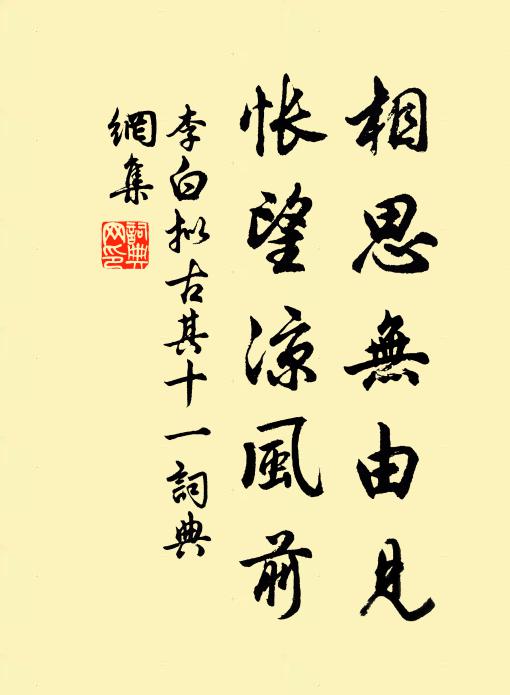 相思無由見
悵望涼風前
李白拟古其十一詞典
網集
詞典
网印